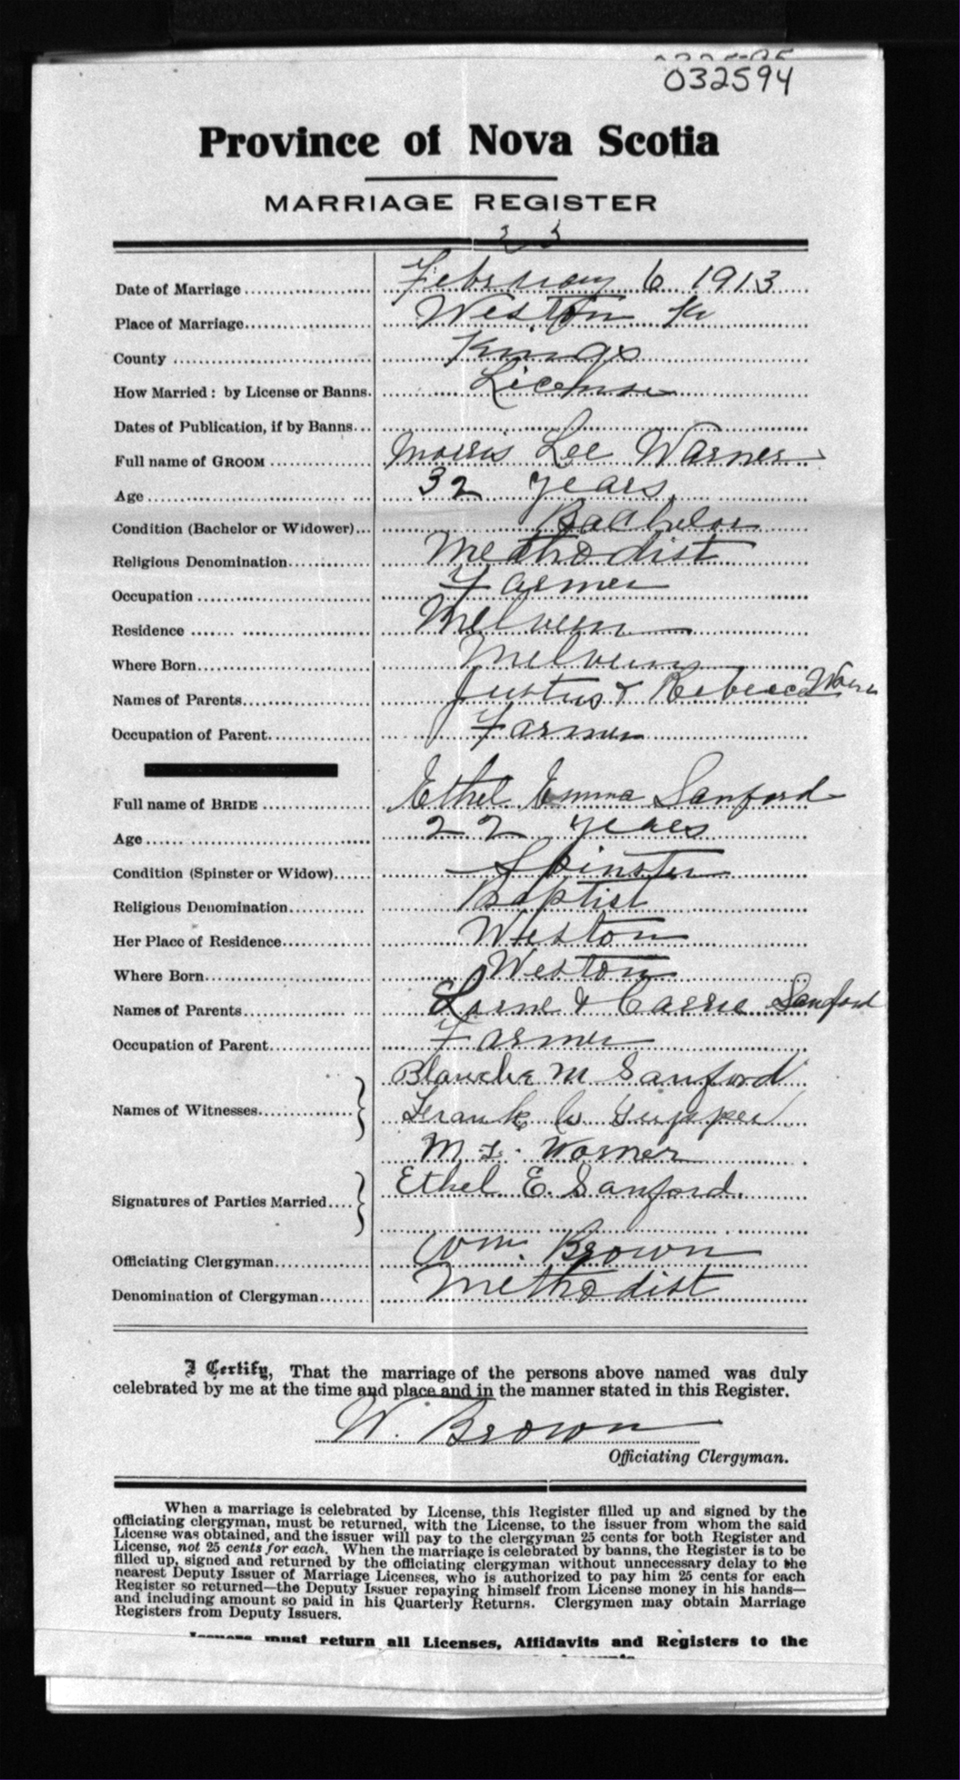 032594
Province of Nova Scotia
MARRIAGE REGISTER
23
Date of Marriage February 6 1913
Place of Marriage Weston
County Kings
How Married: by License or Banns. License
Dates of Publication, if by Banns
Full name of GROOM Morris Lee Warner
Age 32 years
Condition (Bachelor or Widower) Bachelor
Religious Denomination Methodist
Occupation Farmer
Residence Melvern
Where Born Melvern
Names of Parents Justus & Rebecca Warner
Occupation of Parent Farmer
Full name of BRIDE Ethel Emma Sanford
Age 22 years
Condition (Spinster or Widow) Spinster
Religious Denomination Baptist
Her Place of Residence Weston
Where Born Weston
Names of Parents Lorne & Carrie Sanford
Occupation of Parent Farmer
Blanche M Sanford
Names of Witnesses Frank W Tupper
M. L. Warner
Signatures of Parties Married Ethel E. Sanford.
Officiating Clergyman Wm. Brown
Denomination of Clergyman Methodist
I Certify, That the marriage of the persons above named was duly
celebrated by me at the time and place and in the manner stated in this Register.
W. Brown
Officiating Clergyman.
When a marriage is celebrated by License, this Register filled up and signed by the
officiating clergyman, must be returned, with the License, to the issuer from whom the said
License was obtained, and the issuer will pay to the clergyman 25 cents for both Register and
License, not 25 cents for each. When the marriage is celebrated by banns, the Register is to be
filled up, signed and returned by the officiating clergyman without unnecessary delay to the
nearest Deputy Issuer of Marriage Licenses, who is authorized to pay him 25 cents for each
Register so returned—the Deputy Issuer repaying himself from License money in his hands—
and including amount so paid in his Quarterly Returns. Clergymen may obtain Marriage
Registers from Deputy Issuers.
Issuers must return all Licenses, Affidavits and Registers to the